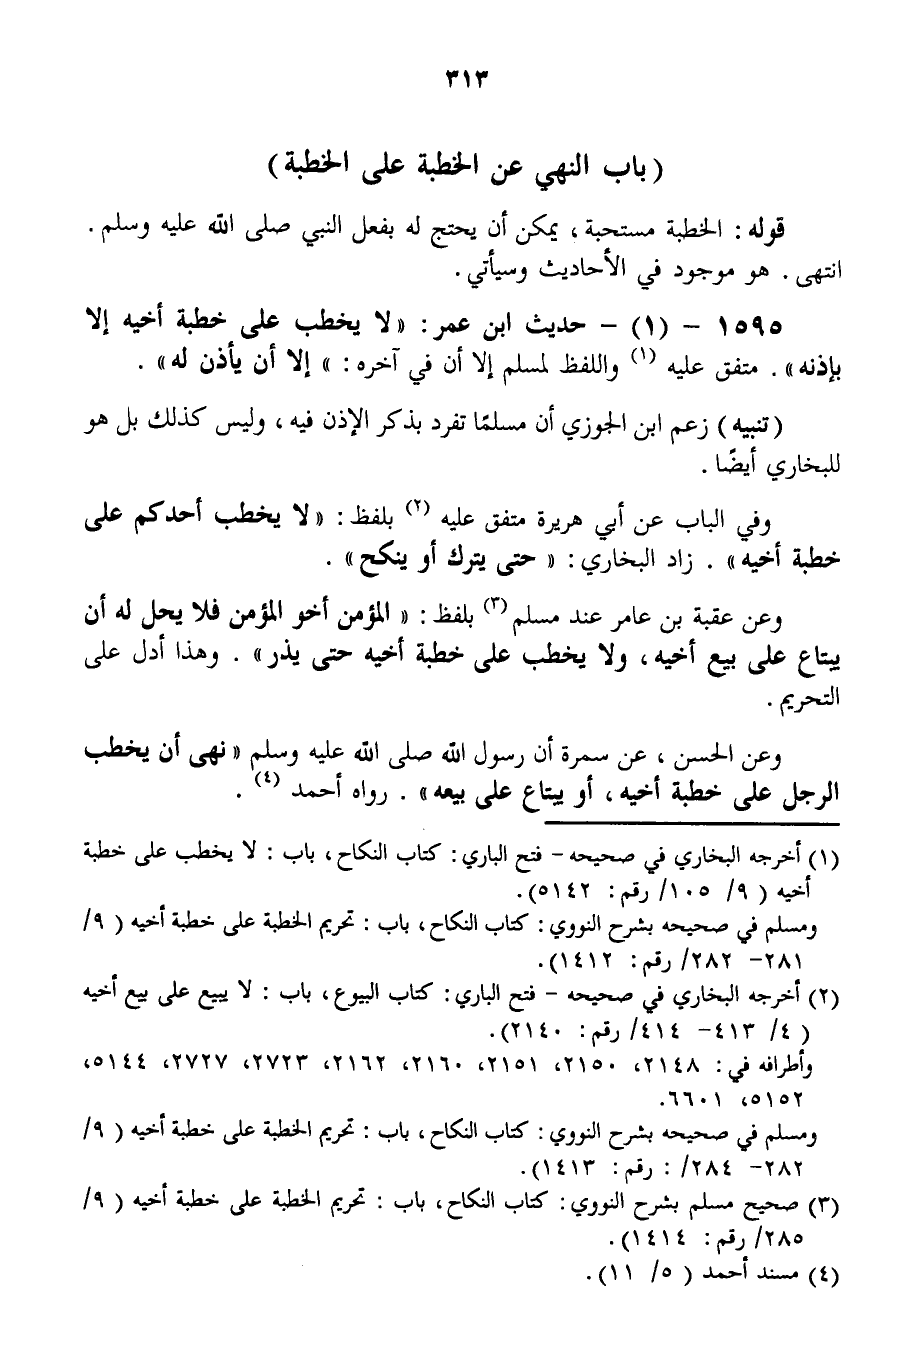 ٣١٣
( باب النهي عن الخطبة على الخطبة )
قوله : الخطبة مستحبة ، يمكن أن يحتج له بفعل النبي صلى الله عليه وسلم .
انتهى . هو موجود في الأحاديث وسيأتي .
١٥٩٥ - (١) - حديث ابن عمر : « لا يخطب على خطبة أخيه إلا
بإذنه » . متفق عليه (١) واللفظ لمسلم إلا أن في آخره : » إلا أن يأذن له » .
( تنبيه ) زعم ابن الجوزي أن مسلمًا تفرد بذكر الإذن فيه ، وليس كذلك بل هو
للبخاري أيضًا .
وفي الباب عن أبي هريرة متفق عليه (٢) بلفظ : « لا يخطب أحدكم على
خطبة أخيه » . زاد البخاري : « حتى يترك أو ينكح » .
وعن عقبة بن عامر عند مسلم (٣) بلفظ : « المؤمن أخو المؤمن فلا يحل له أن
يبتاع على بيع أخيه ، ولا يخطب على خطبة أخيه حتى يذر » . وهذا أدل على
التحريم .
وعن الحسن ، عن سمرة أن رسول الله صلى الله عليه وسلم « نهى أن يخطب
الرجل على خطبة أخيه ، أو يبتاع على بيعه » . رواه أحمد (٤) .
(١) أخرجه البخاري في صحيحه - فتح الباري : كتاب النكاح ، باب : لا يخطب على خطبة
أخيه ( ٩/ ١٠٥/ رقم : ٥١٤٢).
ومسلم في صحيحه بشرح النووي : كتاب النكاح ، باب : تحريم الخطبة على خطبة أخيه ( ٩/
٢٨١- ٢٨٢/ رقم : ١٤١٢).
(٢) أخرجه البخاري في صحيحه - فتح الباري : كتاب البيوع ، باب : لا يبيع على بيع أخيه
( ٤/ ٤١٣- ٤١٤/ رقم : ٢١٤٠).
وأطرافه في : ٢١٤٨، ٢١٥٠، ٢١٥١، ٢١٦٠، ٢١٦٢، ٢٧٢٣، ٢٧٢٧، ٥١٤٤،
٥١٥٢، ٦٦٠١.
ومسلم في صحيحه بشرح النووي : كتاب النكاح ، باب : تحريم الخطبة على خطبة أخيه ( ٩/
٢٨٢- ٢٨٤/ : رقم : ١٤١٣).
(٣) صحيح مسلم بشرح النووي : كتاب النكاح ، باب : تحريم الخطبة على خطبة أخيه ( ٩/
٢٨٥/ رقم : ١٤١٤).
(٤) مسند أحمد ( ٥/ ١١).